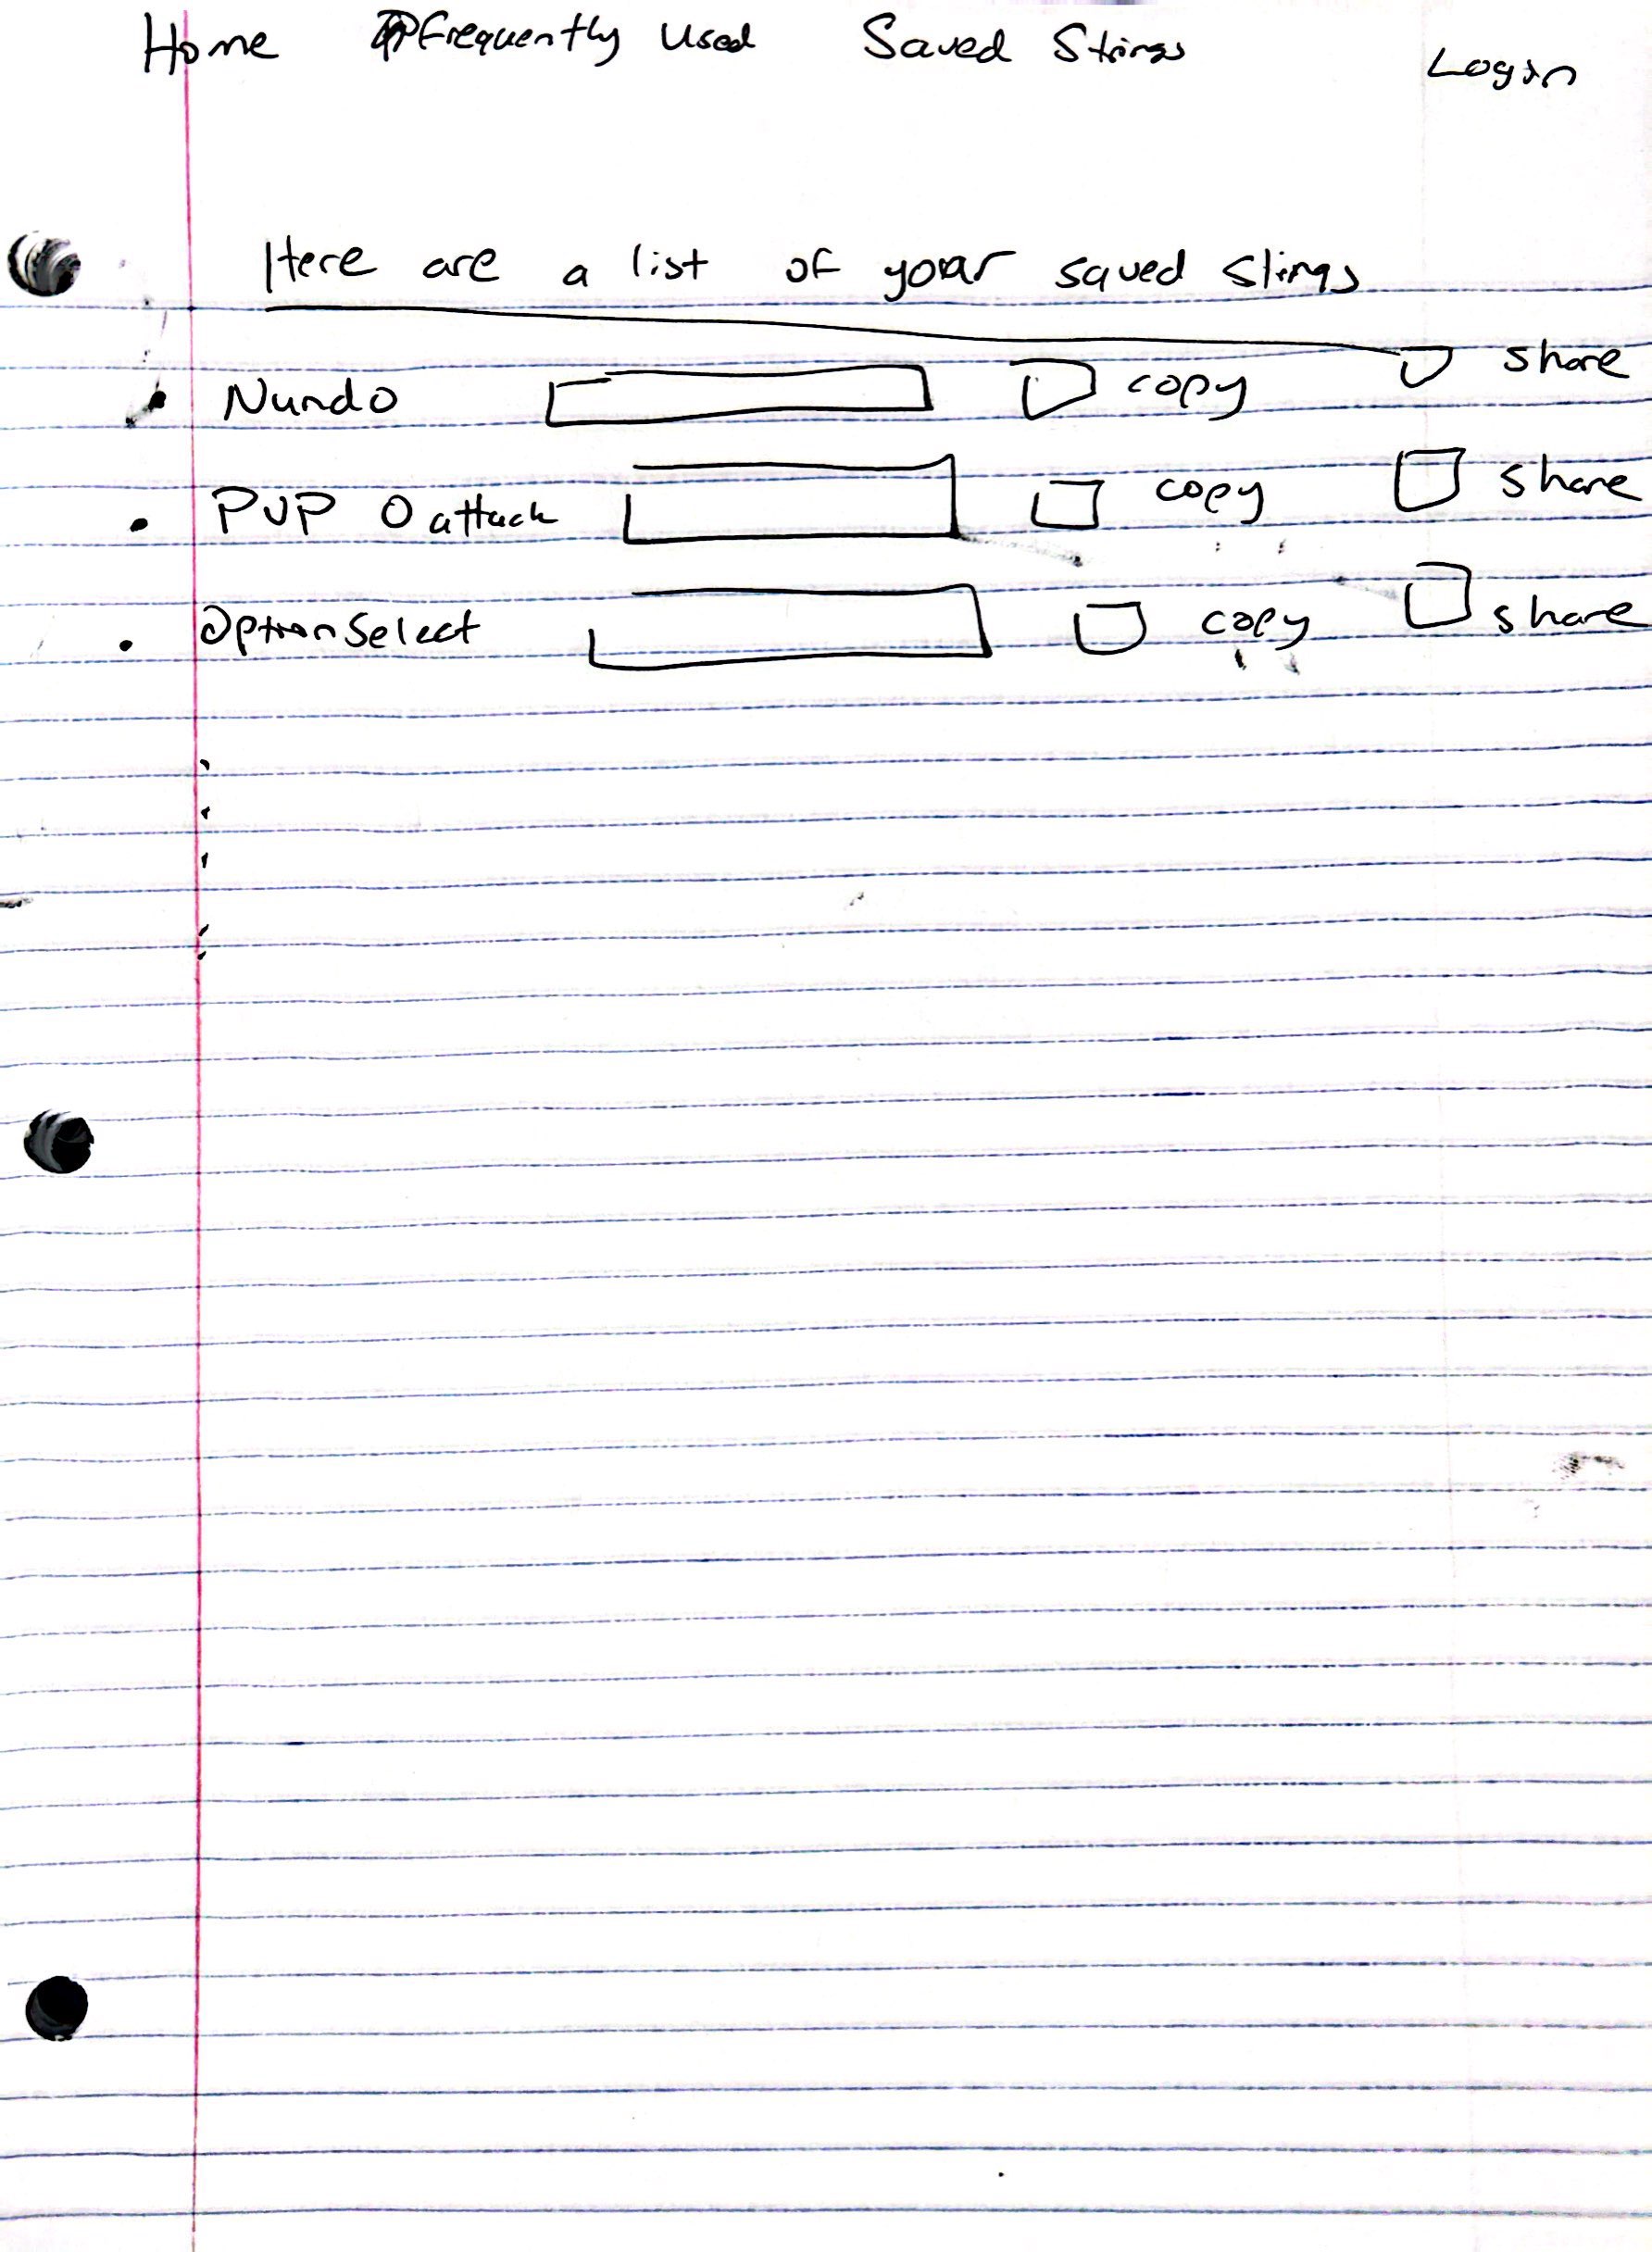 Home Frequently Used Saved Strings Login
Here are a list of your saved strings
• Nundo copy share
• PVP 0 attack copy share
• Option Select copy share